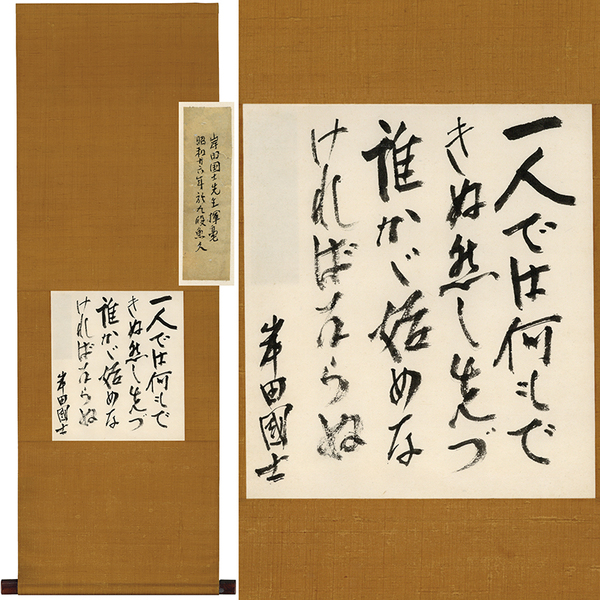 岸田国士先生揮毫
昭和廿六年於九段魚久
一人では何もで
きぬ然し先づ
誰かゞ始めな
ければならぬ
岸田國士
一人では何もで
きぬ然し先づ
誰かゞ始めな
ければならぬ
岸田國士